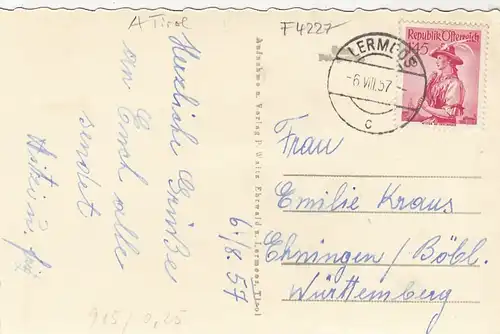 A Tirol
F4227
Herzliche Grüße
an Euch alle
sendet
6./8. 57
Aufnahme u. Verlag P. Waitz Ehrwald u. Lermoos, Tirol
LERMOOS
-6.VIII.57
c
Republik Österreich
1·45
Frau
Emilie Kraus
Ehningen / Böbl.
Württemberg
915/0,25